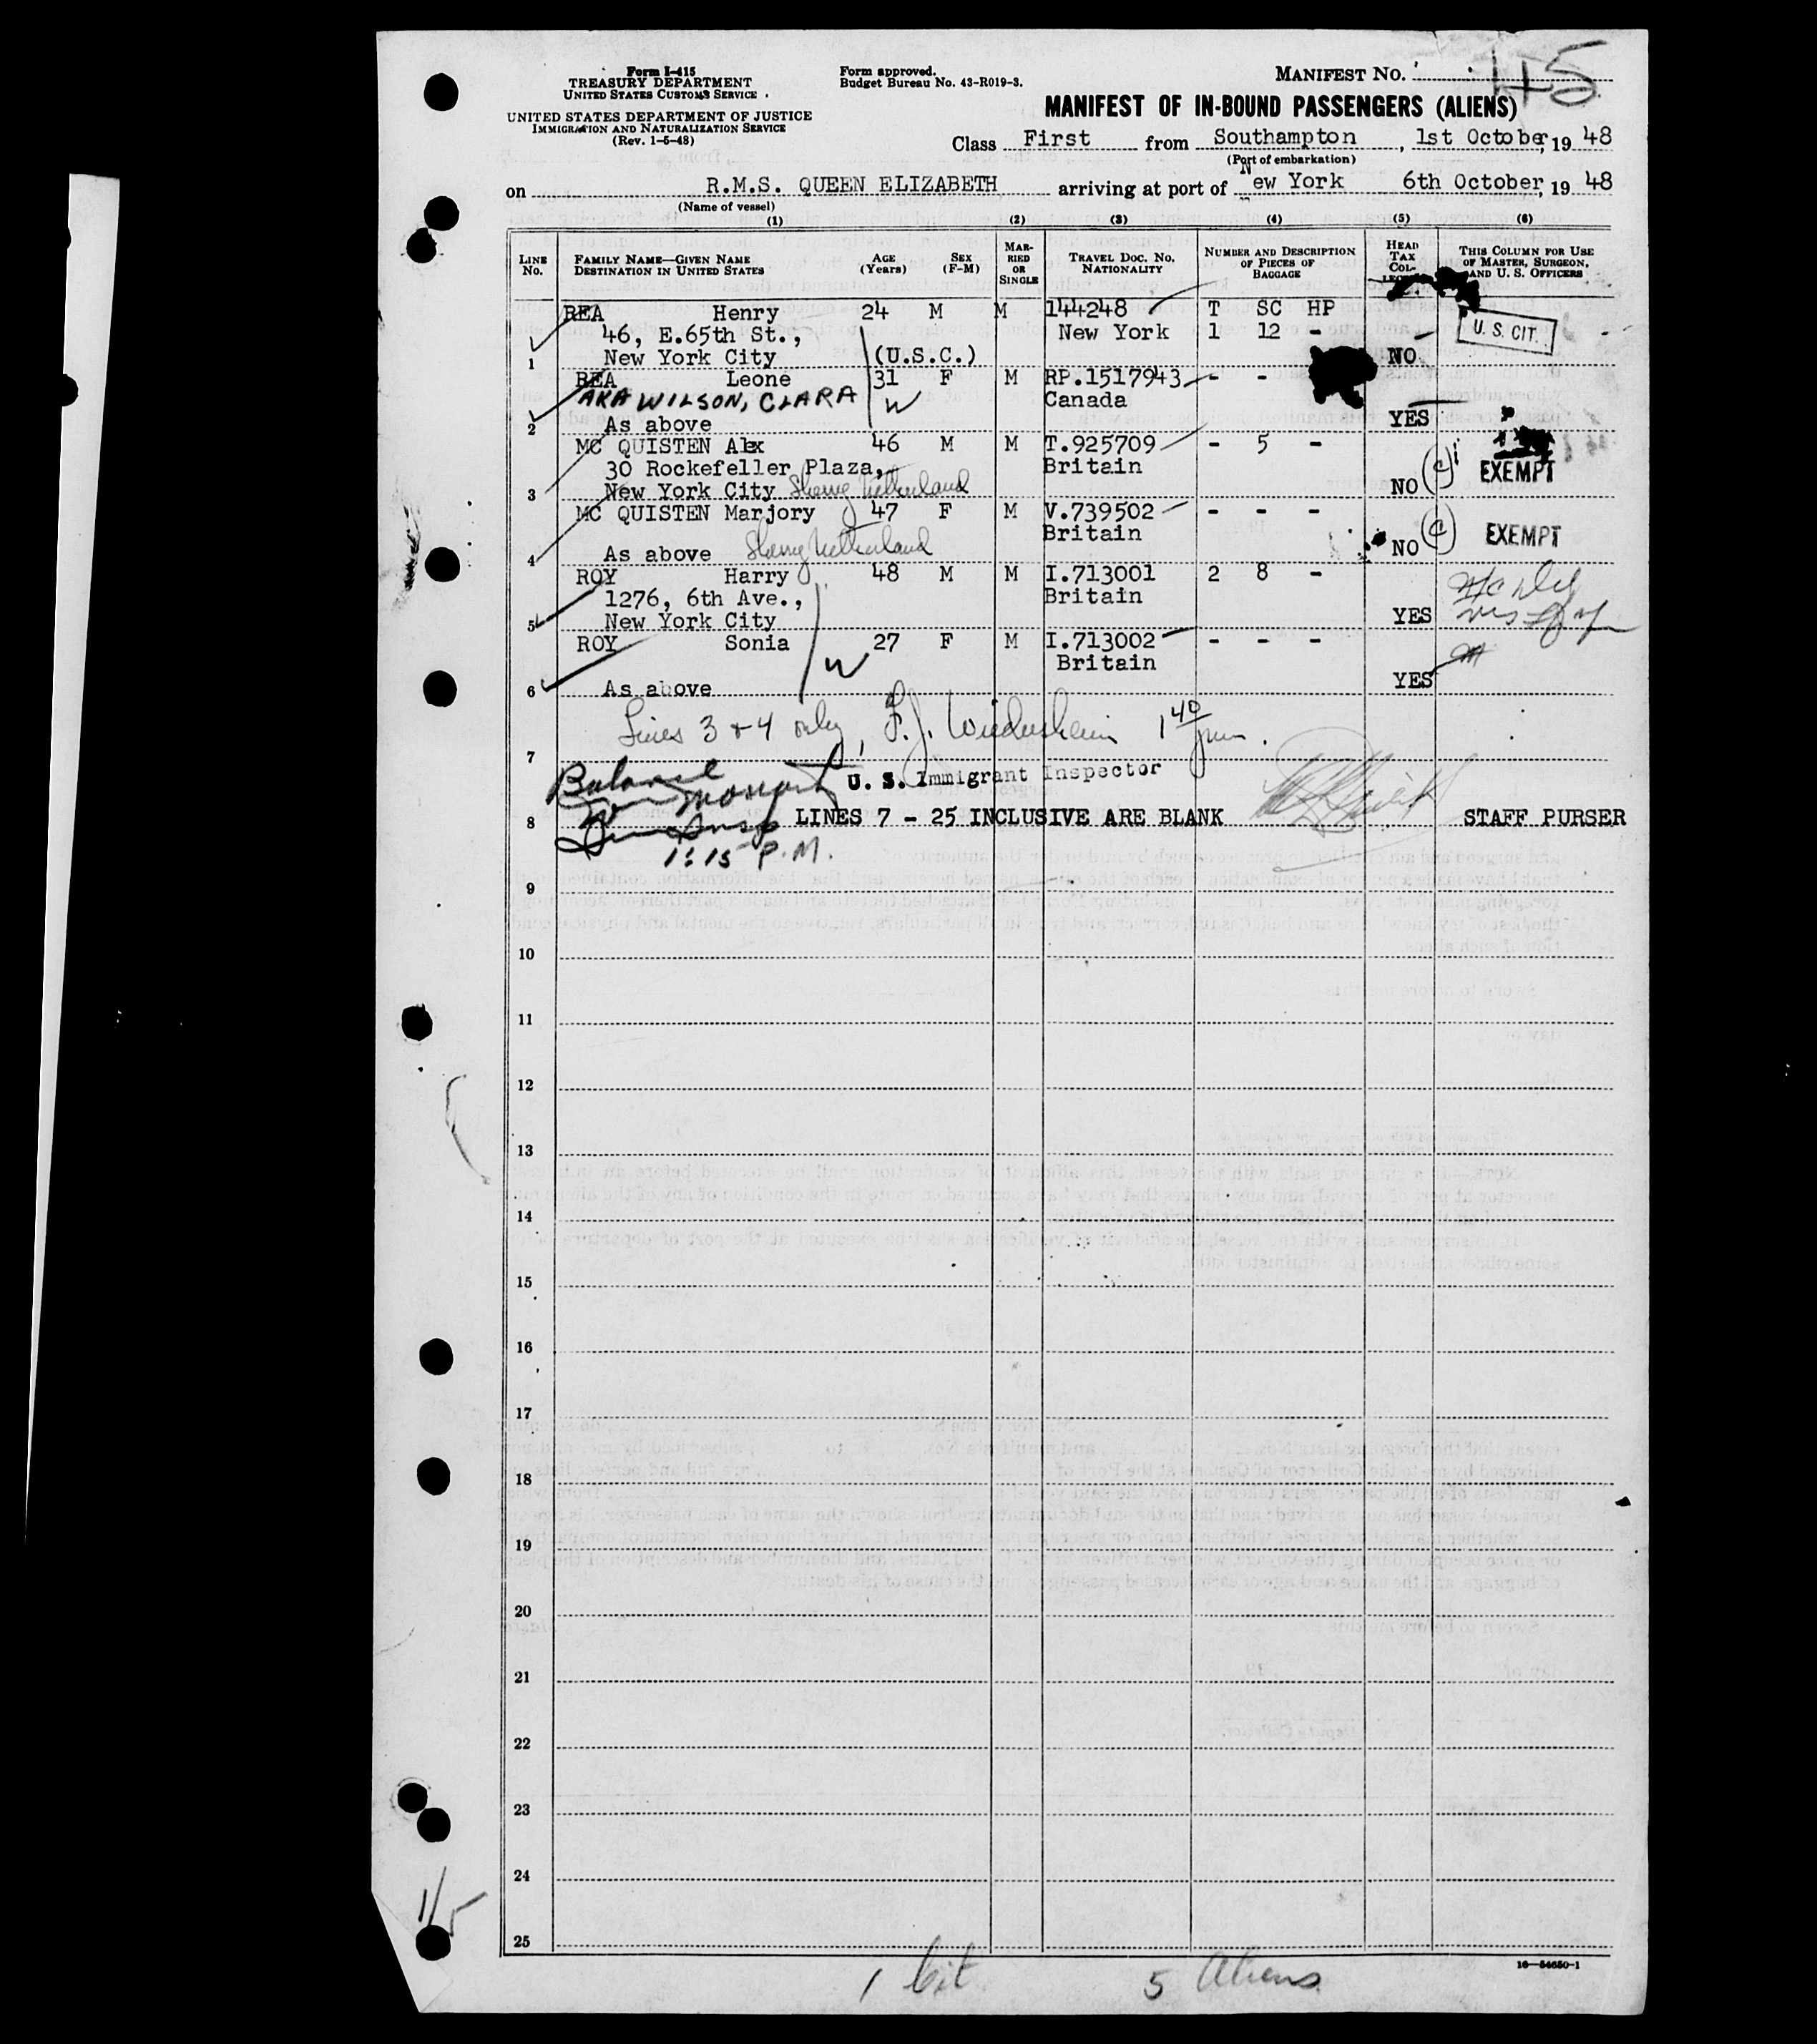 Form I-415
TREASURY DEPARTMENT
UNITED STATES CUSTOMS SERVICE
UNITED STATES DEPARTMENT OF JUSTICE
IMMIGRATION AND NATURALIZATION SERVICE
(Rev. 1-5-48)
Form approved.
Budget Bureau No. 43-R019-3.
MANIFEST NO. 45
MANIFEST OF IN-BOUND PASSENGERS (ALIENS)
Class First from Southampton, 1st October, 19 48
(Port of embarkation)
on R.M.S. QUEEN ELIZABETH arriving at port of New York 6th October, 19 48
(Name of vessel)
(1) (2) (3) (4) (5) (6)
LINE NO. FAMILY NAME—GIVEN NAME DESTINATION IN UNITED STATES AGE (Years) SEX (F-M) MARRIED OR SINGLE TRAVEL DOC. NO. NATIONALITY NUMBER AND DESCRIPTION OF PIECES OF BAGGAGE HEAD TAX COL- THIS COLUMN FOR USE OF MASTER, SURGEON, AND U. S. OFFICERS
REA Henry 24 M M 144248 T SC HP
46, E.65th St., New York 1 12 - U. S. CIT.
1 New York City (U.S.C.) NO
REA Leone 31 F M RP.1517943 - -
AKA WILSON, CLARA W Canada
2 As above YES
MC QUISTEN Alex 46 M M T.925709 - 5 -
30 Rockefeller Plaza, Britain EXEMPT
3 New York City Sherry Netherland NO
MC QUISTEN Marjory 47 F M V.739502 - - -
Britain EXEMPT
4 As above Sherry Netherland NO
ROY Harry 48 M M I.713001 2 8 -
1276, 6th Ave., Britain
5 New York City YES
ROY Sonia 27 F M I.713002 - - -
W Britain
6 As above YES
Lines 3 & 4 only, F.J. 1 40
7
U. S. Immigrant Inspector
Balance
8 LINES 7 - 25 INCLUSIVE ARE BLANK STAFF PURSER
1:15 P.M.
9
10
11
12
13
14
15
16
17
18
19
20
21
22
23
24
25
16—54650-1
1 Cit 5 Aliens